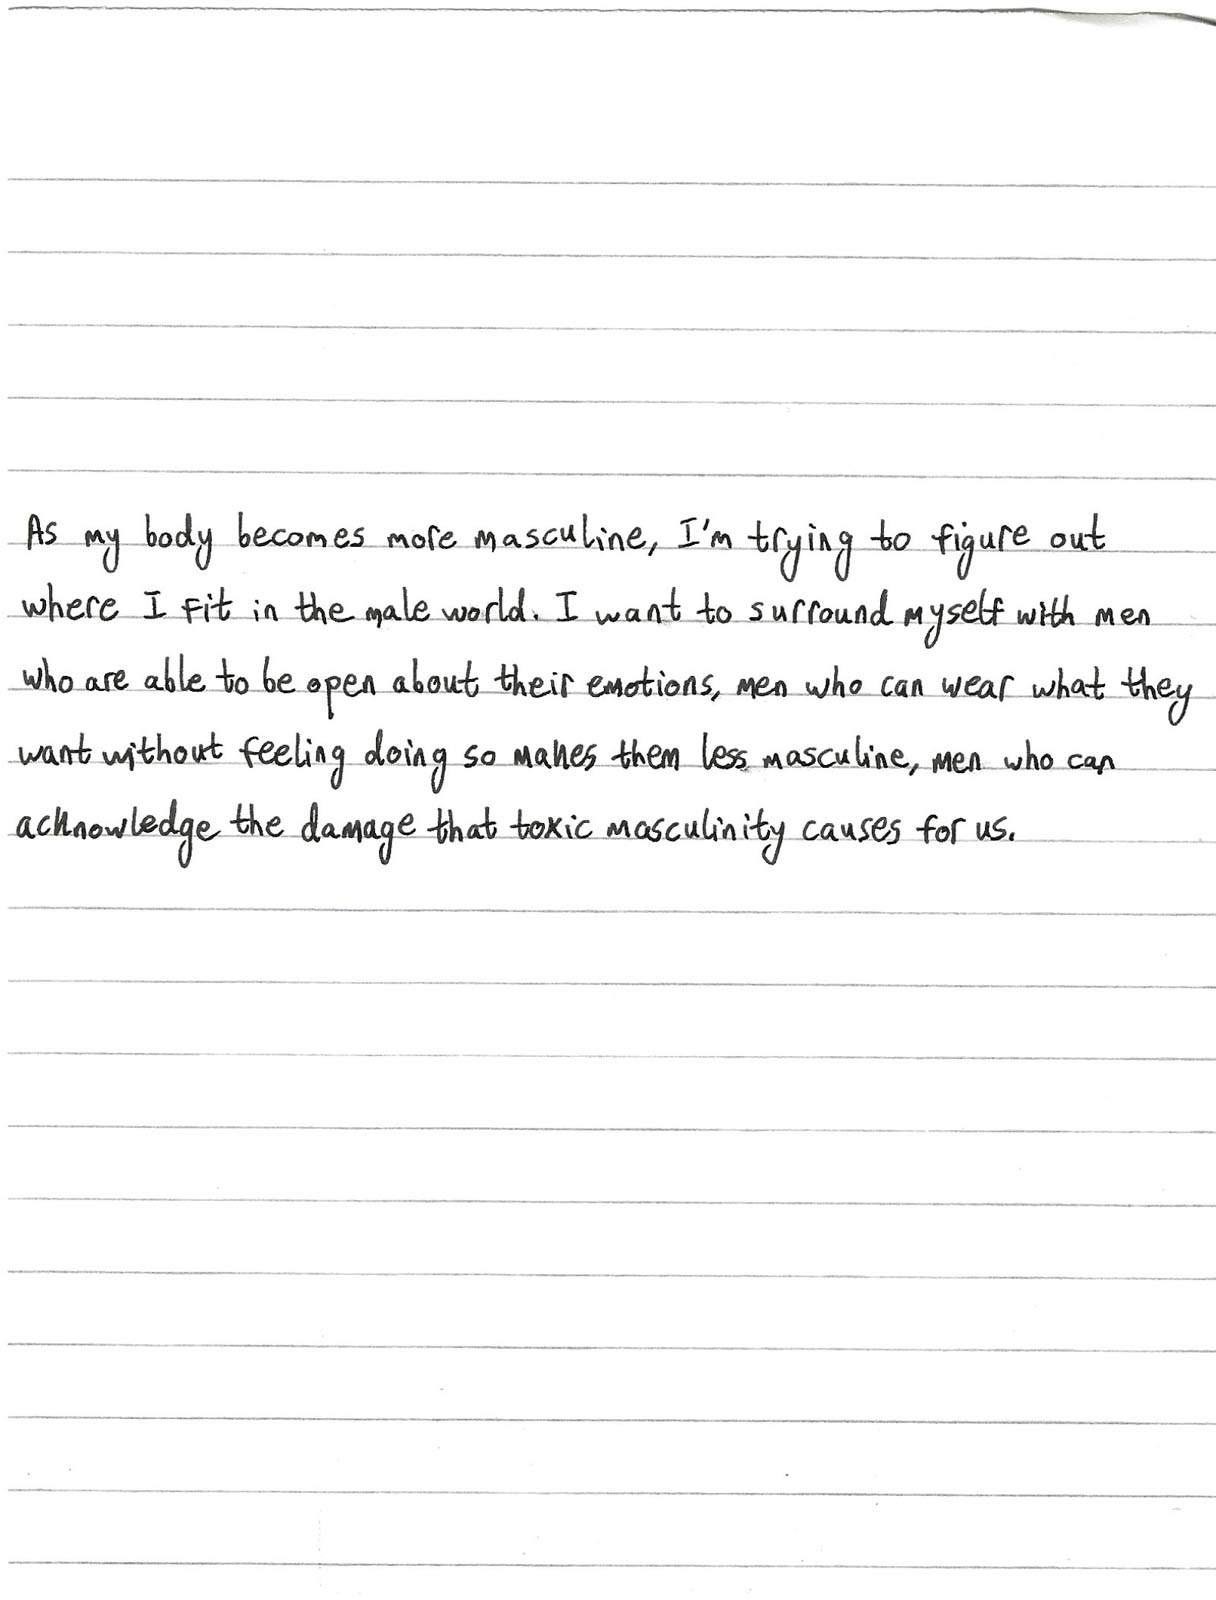 As my body becomes more masculine, I'm trying to figure out
where I fit in the male world. I want to surround myself with men
who are able to be open about their emotions, men who can wear what they
want without feeling doing so makes them less masculine, men who can
acknowledge the damage that toxic masculinity causes for us.